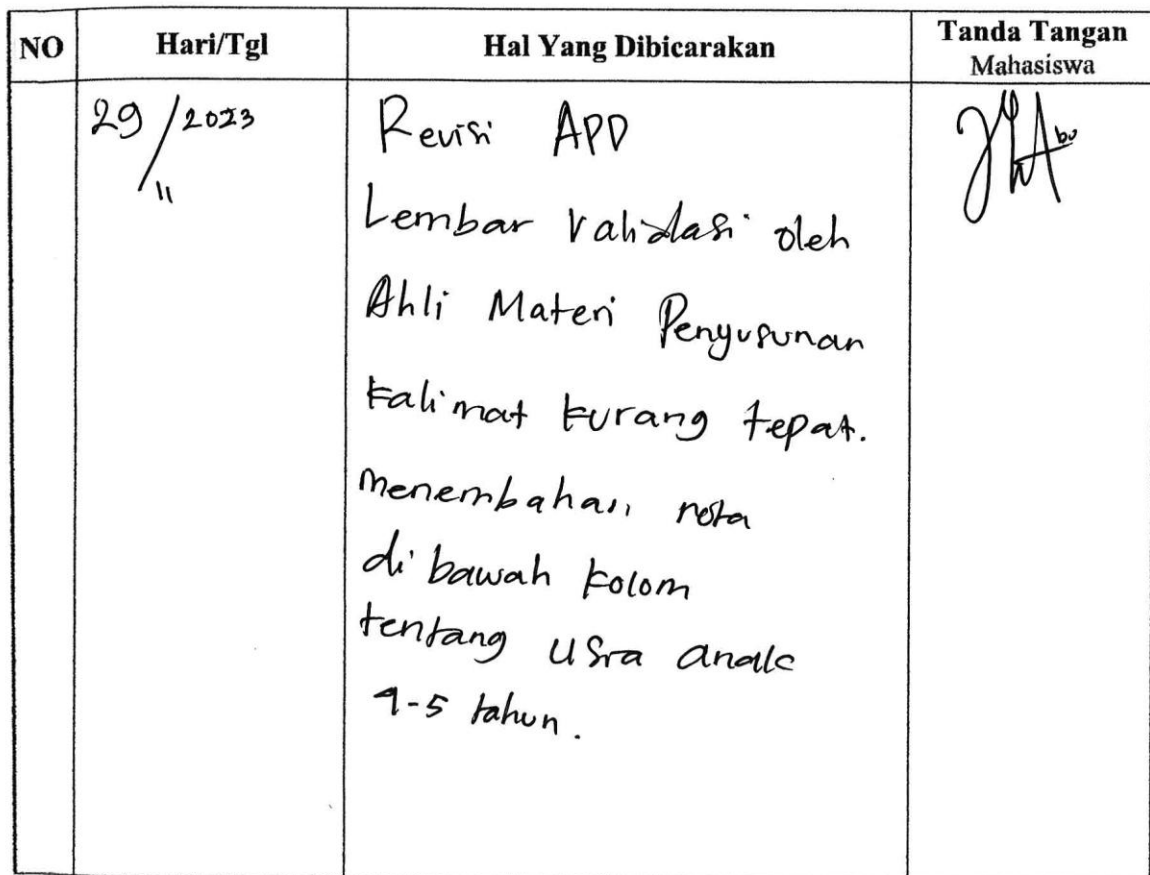 NO Hari/Tgl Hal Yang Dibicarakan Tanda Tangan
Mahasiswa
29/11 2023 Revisi APD
Lembar Validasi oleh
Ahli Materi Penyusunan
kalimat kurang tepat.
menembahan nota
di bawah kolom
tentang usia anak
4-5 tahun.